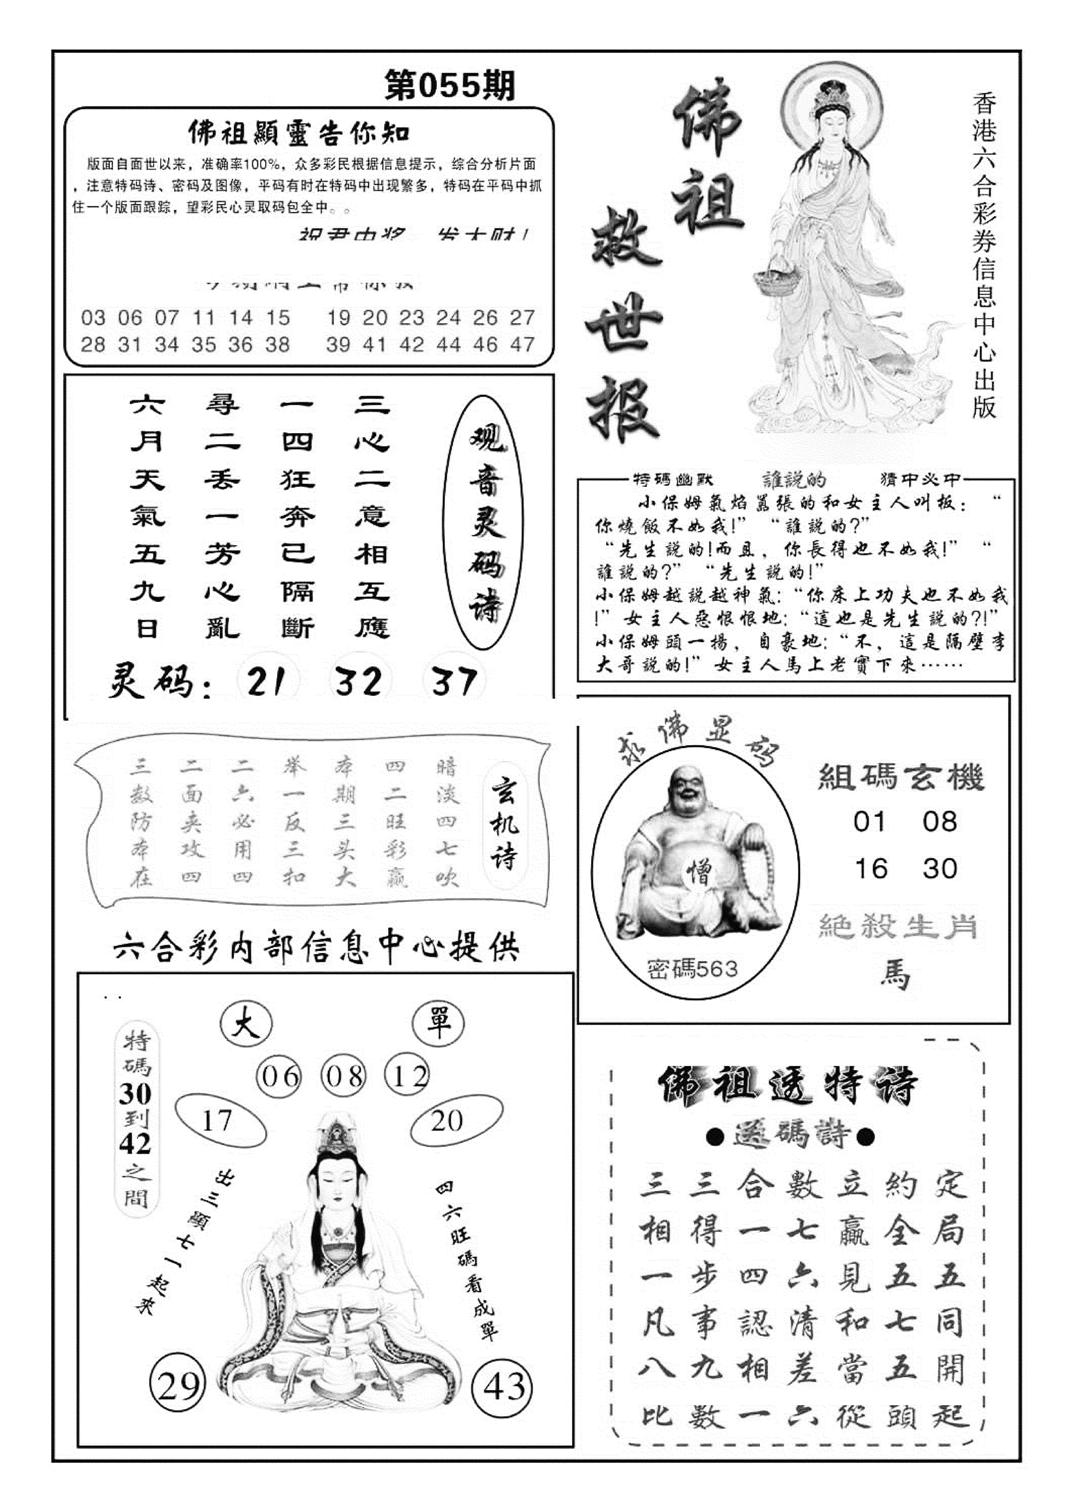 第055期
佛祖顯靈告你知
版面自面世以来，准确率100%，众多彩民根据信息提示，综合分析片面
，注意特码诗、密码及图像，平码有时在特码中出现繁多，特码在平码中抓
住一个版面跟踪，望彩民心灵取码包全中。。
祝君中奖 发大财！
03 06 07 11 14 15 19 20 23 24 26 27
28 31 34 35 36 38 39 41 42 44 46 47
佛祖
救世报
香港六合彩券信息中心出版
观音灵码诗
三心二意相互應
一四狂奔已隔斷
尋二丢一芳心亂
六月天氣五九日
灵码：21 32 37
特碼幽默 誰説的 猜中必中
小保姆氣焰囂張的和女主人叫板：“
你燒飯不如我!”“誰説的?”
“先生説的!而且，你長得也不如我!”“
誰説的?”“先生説的!”
小保姆越説越神氣:“你床上功夫也不如我
!”女主人惡恨恨地:“這也是先生説的?!”
小保姆頭一揚，自豪地:“不，這是隔壁李
大哥説的!”女主人馬上老實下來……
玄机诗
暗淡四七吹
四二旺彩赢
本期三头大
举一反三扣
二六必用四
二面夹攻四
三数防本在
求佛显码
憎
密碼563
組碼玄機
01 08
16 30
絶殺生肖
馬
六合彩内部信息中心提供
大 單
06 08 12
17 20
特碼30到42之間
出三顯七一起來
四六旺碼看成單
29 43
佛祖透特诗
●送碼詩●
三三合數立約定
相得一七贏全局
一步四六見五五
凡事認清和七同
八九相差當五開
比數一六從頭起